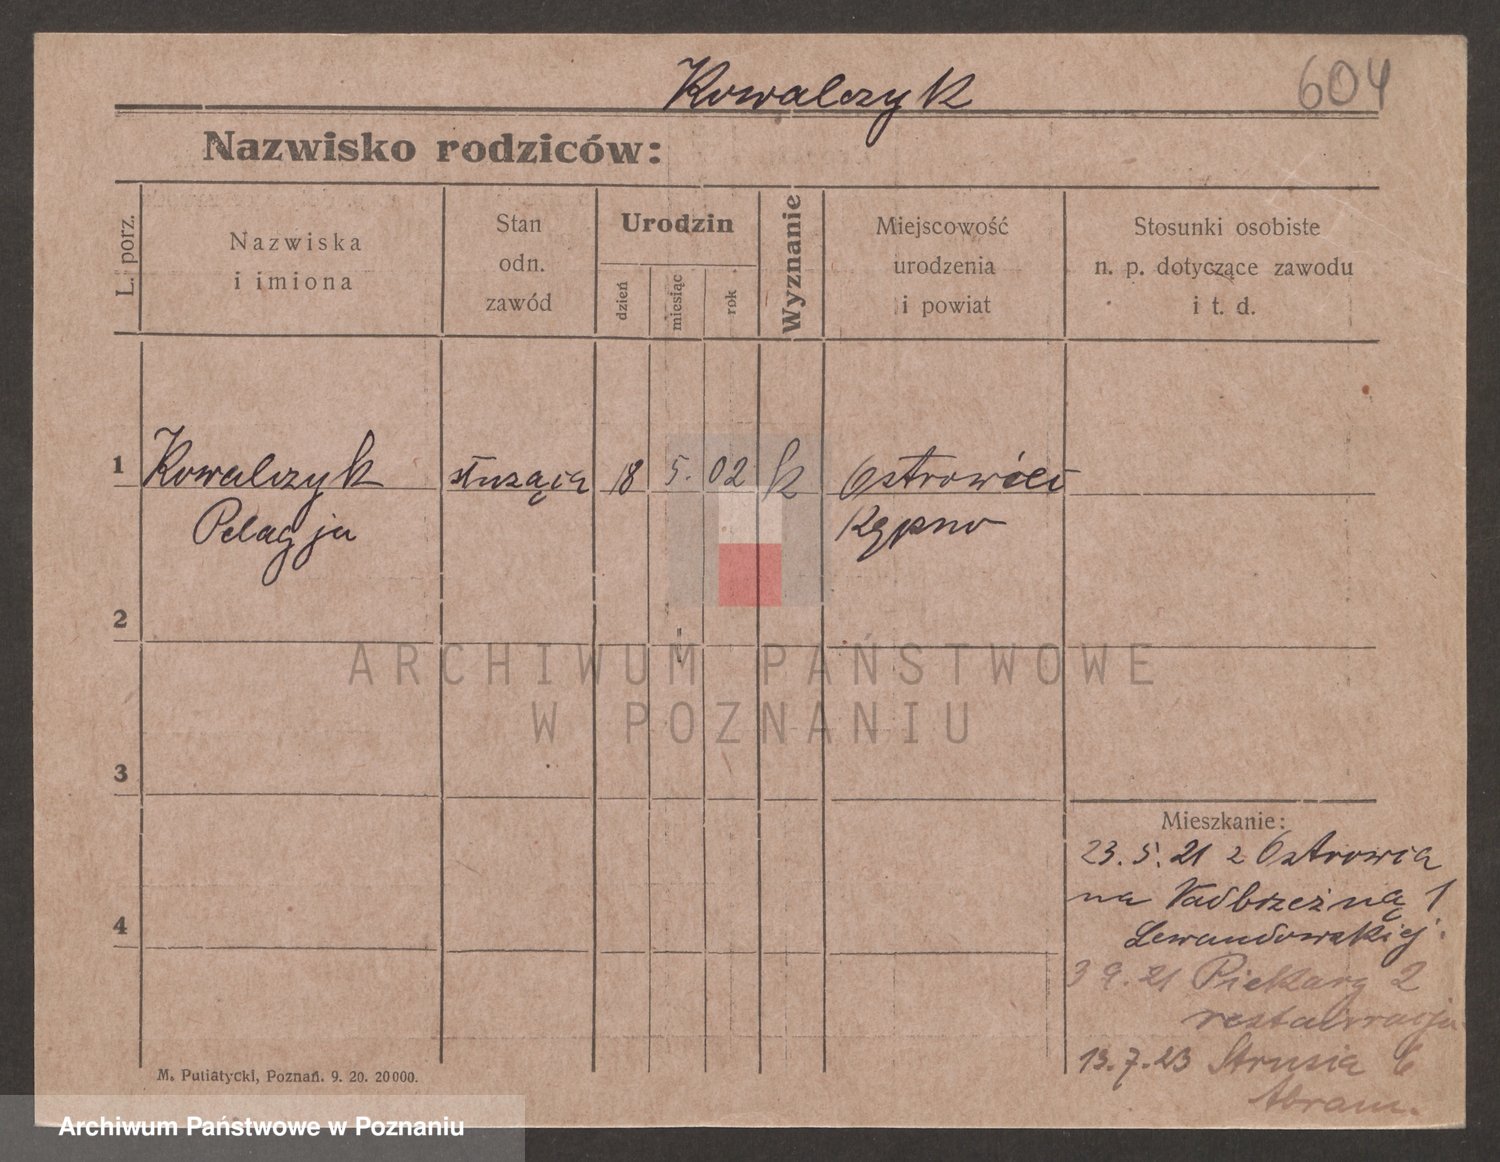 Kowalczyk
604
Nazwisko rodziców:
L. porz.
Nazwiska
i imiona
Stan
odn.
zawód
Urodzin
dzień
miesiąc
rok
Wyznanie
Miejscowość
urodzenia
i powiat
Stosunki osobiste
n. p. dotyczące zawodu
i t. d.
1
Kowalczyk służąca 18 5. 02 k
Pelagja Kępno
2
ARCHIWUM PAŃSTWOWE
W POZNANIU
3
Mieszkanie:
23. 5. 21 z Ostrowia
na Nadbrzeżną 1
Lewandowskiej.
4
3 9. 21 Piekary 2
restauracja
13. 7. 23 Strusia 6
Abram.
M. Putiatycki, Poznań. 9. 20. 20000.
Archiwum Państwowe w Poznaniu